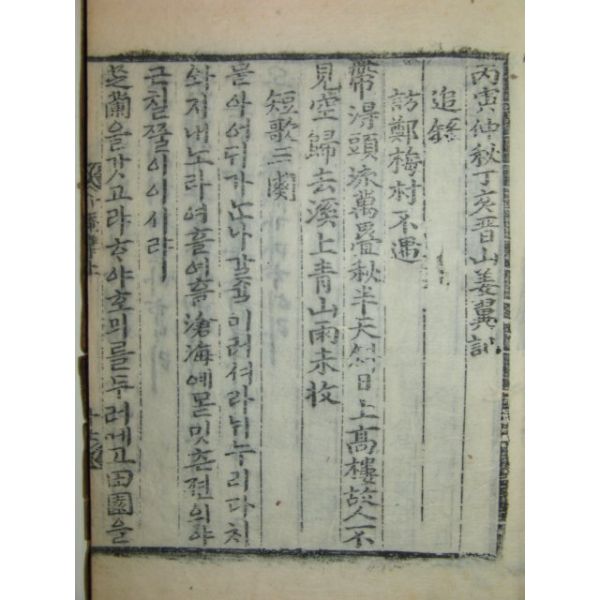 丙寅仲秋丁亥晋山姜翼記
追錄
訪鄭梅村不遇
帶得頭流萬疊秋半天斜日上高樓故人不
見空歸去溪上青山雨未收
短歌三闋
믈아어듸가ᄂᆞ냐갈길머러셔라뉘누리다치
와지내노라여흘여흘滄海예몯밋츤젼의야
근칠쭐이이시랴
芝蘭을갓고랴ᄒᆞ야호믜를두러메고田園을